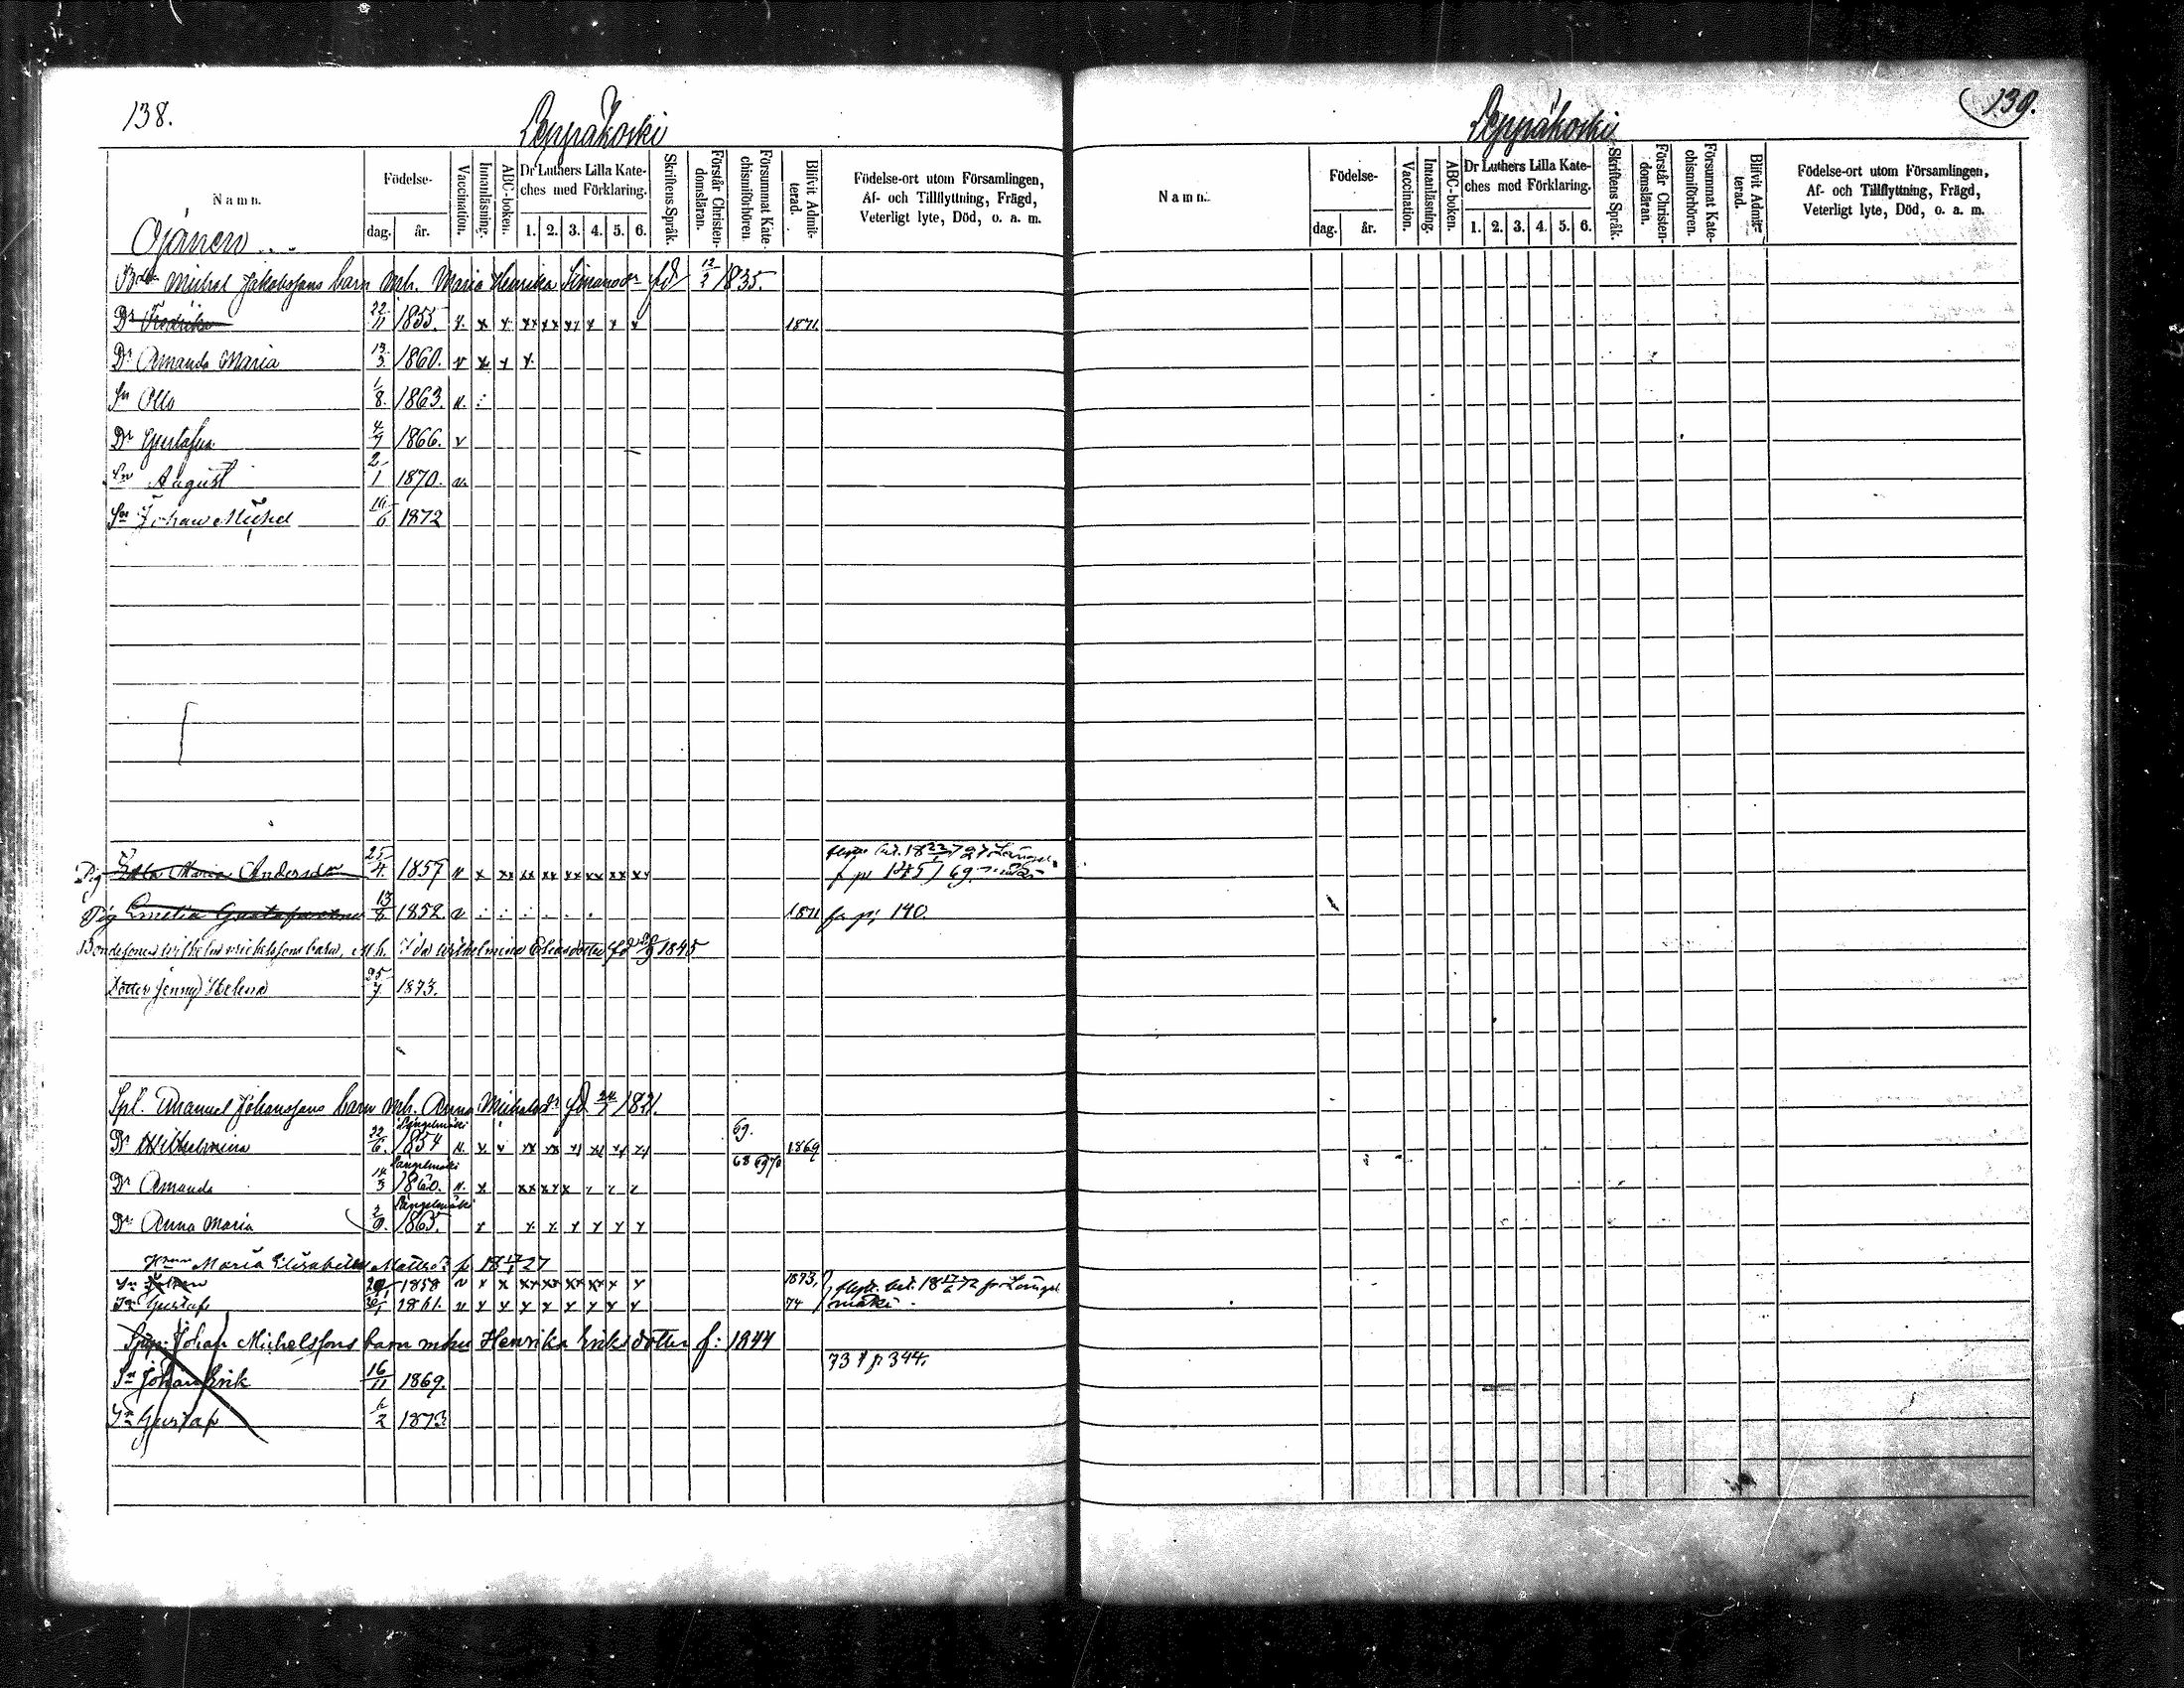 138.
Leppäkoski
Namn.
Födelse-
dag. år.
Vaccination.
Innanläsning.
ABC-boken.
Dr Luthers Lilla Kate-
ches med Förklaring.
1. 2. 3. 4. 5. 6.
Skriftens Språk.
Förstår Christen-
domsläran.
Försummat Kate-
chismiförhören.
Blifvit Admit-
terad.
Födelse-ort utom Församlingen,
Af- och Tillflyttning, Frägd,
Veterligt lyte, Död, o. a. m.
Ojanen
Michel Jakobssons barn mh. Maria Henrika Simonsdr fd 12/2 1835.
Dr Fredrika 22/11 1855. v. x x xx xx xx x x x 1871.
Dr Amanda Maria 13/3 1860. v x x x
Sn Otto 1/8 1863. v.
Dr Gustafva 4/7 1866. v
Sn August 2/1 1870. v.
Sn Johan Michel 6 1872
Pig Maria Andersdr 25/4 1857 v x xx xx xx xx xx xx xx
Pig Emelia 13/8 1852. v 1871 fr p; 140.
Bondesonen Wilhelm Michelssons barn, m.h. Ida Wilhelmina Eliasdotter fd 1845
Dotter Jenny Helena 25/7 1873.
Spl. Emanuel Johanssons barn mh. Anna Michelsdr fd 24 1821.
Dr Wilhelmina 22/6 Längelmäki 1854 v. x v xx xx x x x x 69. 1869
Dr Amanda 14/3 Längelmäki 1860. v. x xx x x 68 69 70
Dr Anna Maria 2/9 Längelmäki 1865. x x x x x x x
Maria Elisabeth Mattsdr f. 18 27
Sn Johan 1858 v x x xx xx xx xx x x 1873. flytt. bet. 18 72 fr Längel
Sn Gustaf 1861. v x x x x x x x x 74 mäki.
Johan Michelssons barn moder Henrika Eriksdotter f: 1844
73 f p 344.
Sn Johan Erik 16/11 1869.
Sn Gustaf 6/2 1873
139.
Leppäkoski
Namn.
Födelse-
dag. år.
Vaccination.
Innanläsning.
ABC-boken.
Dr Luthers Lilla Kate-
ches med Förklaring.
1. 2. 3. 4. 5. 6.
Skriftens Språk.
Förstår Christen-
domsläran.
Försummat Kate-
chismiförhören.
Blifvit Admit-
terad.
Födelse-ort utom Församlingen,
Af- och Tillflyttning, Frägd,
Veterligt lyte, Död, o. a. m.